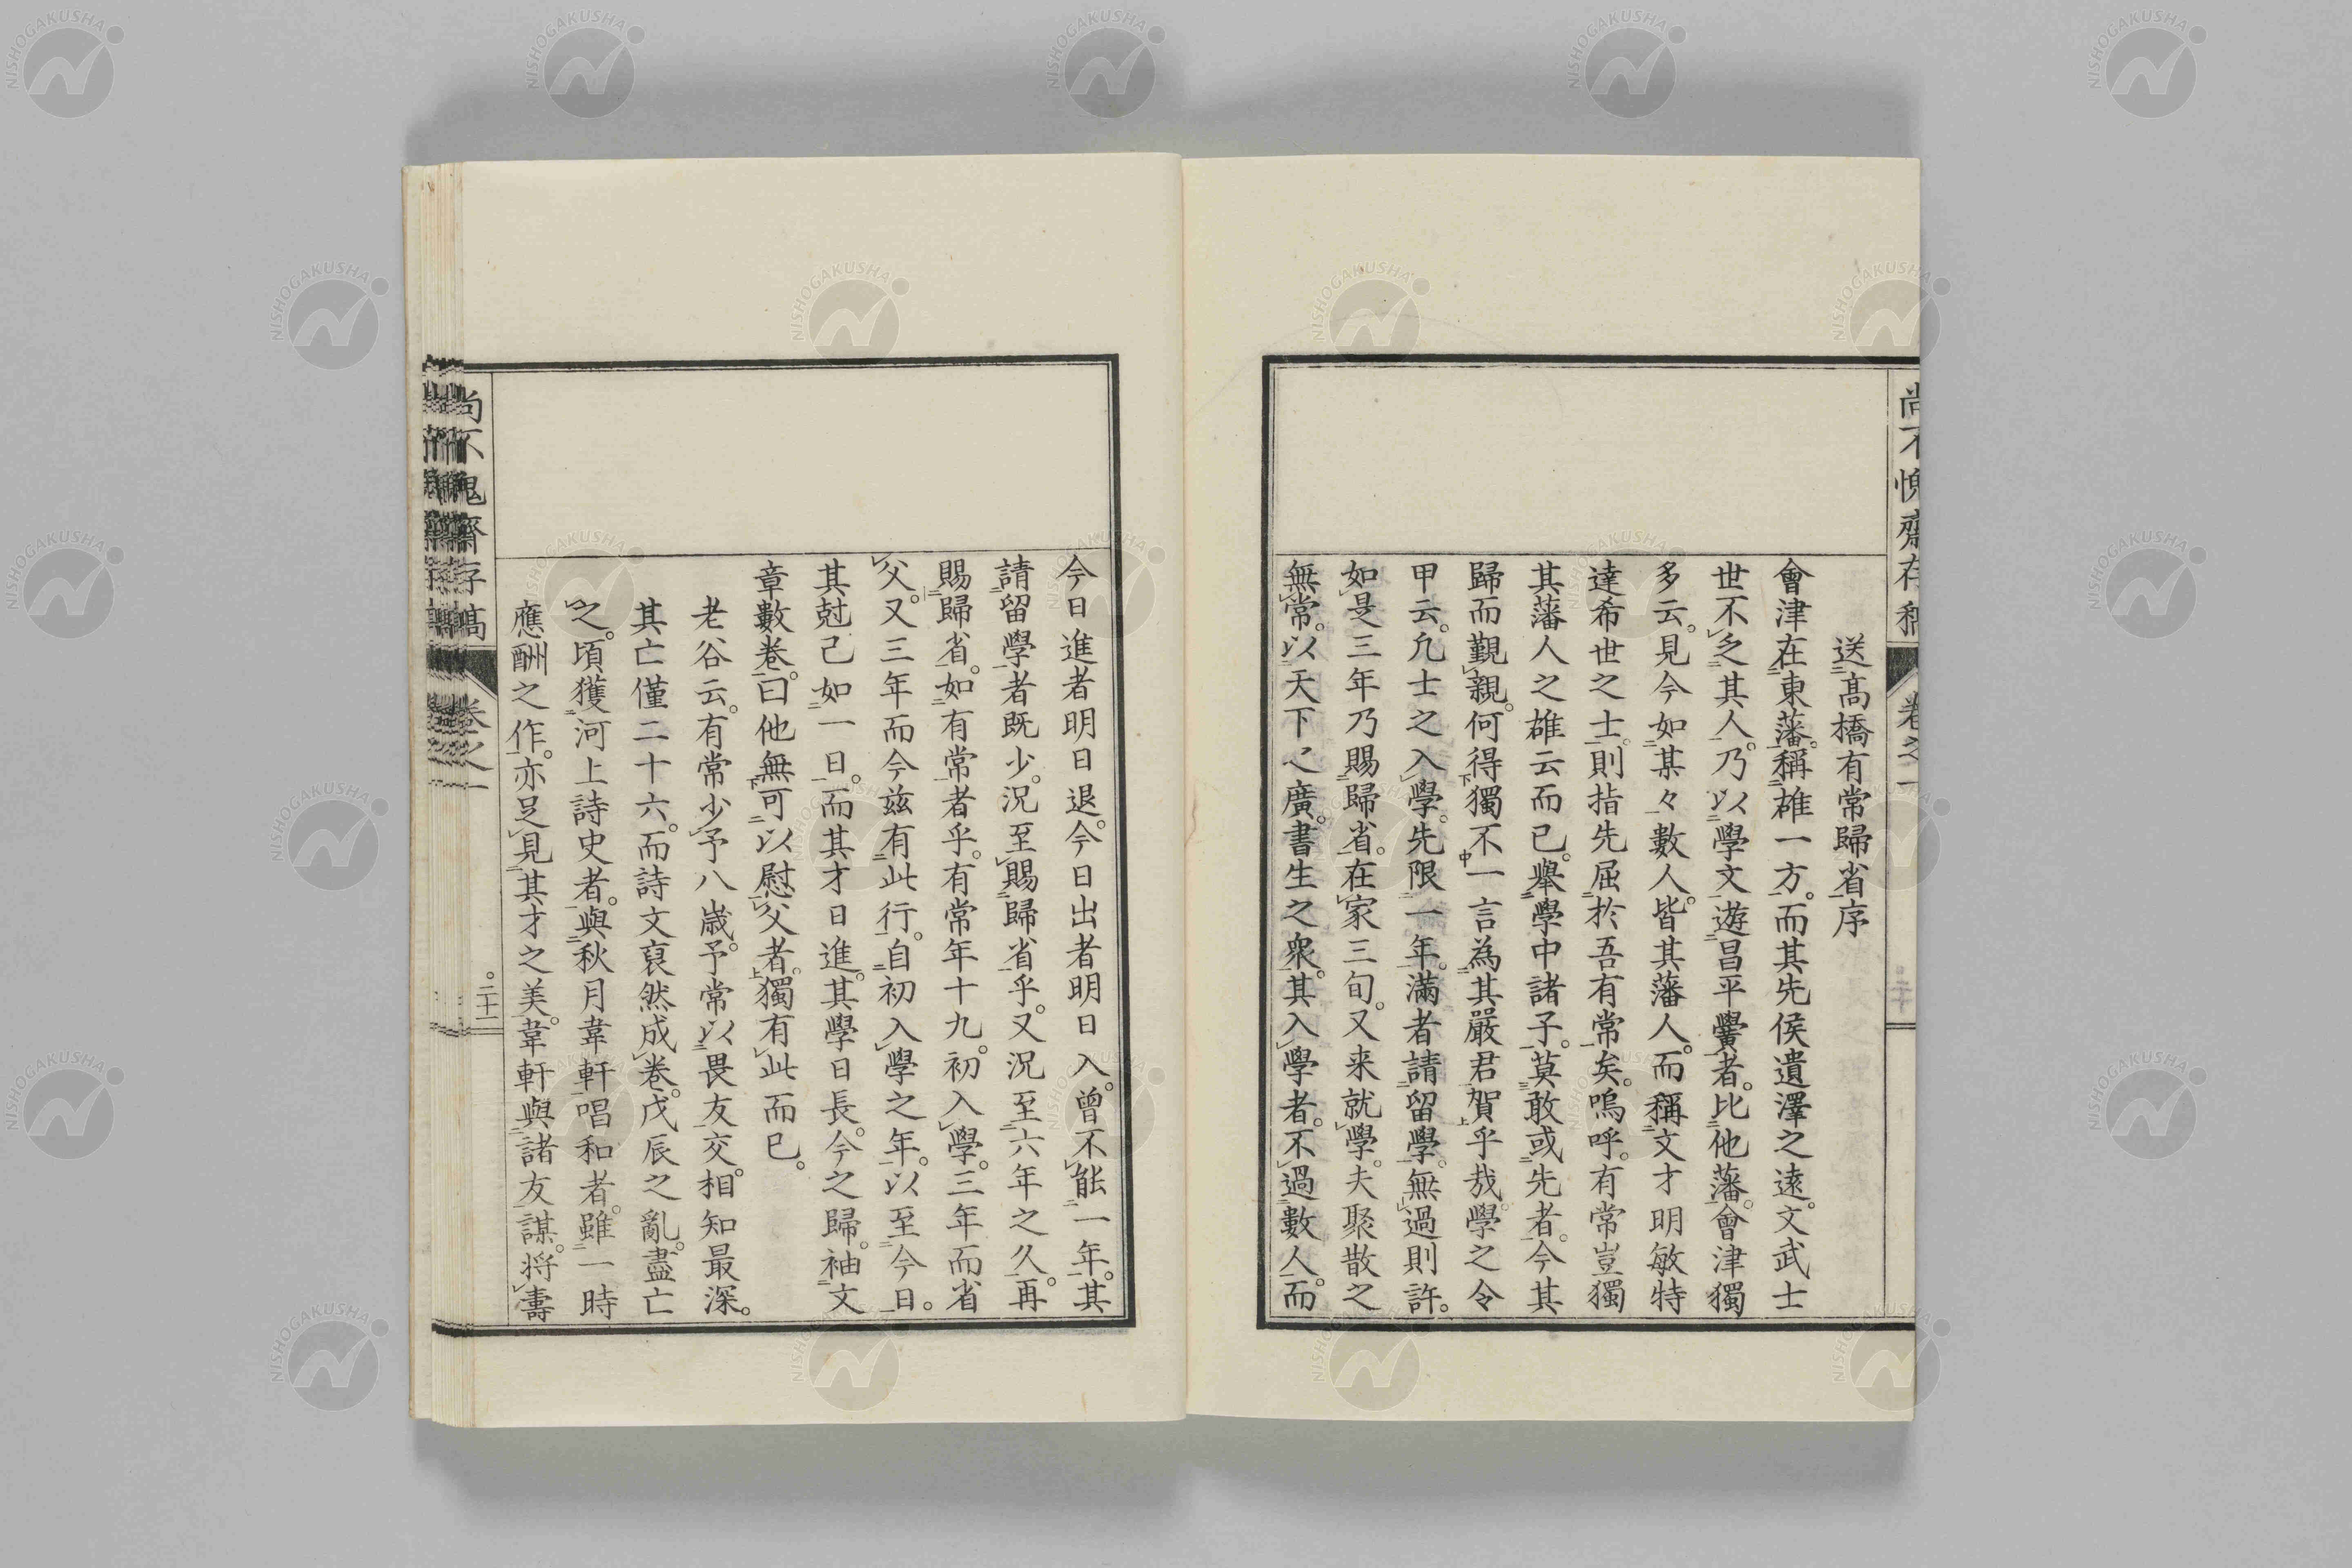 尚不愧齋存稿 卷之一
送高橋有常歸省序
會津在東藩。稱雄一方。而其先侯遺澤之遠。文武士
世不乏其人。乃以學文遊昌平黌者。比他藩。會津獨
多云。見今如某々數人。皆其藩人。而稱文才明敏特
達希世之士。則指先屈於吾有常矣。嗚呼。有常豈獨
其藩人之雄云而已。舉學中諸子。莫敢或先者。今其
歸而觀親。何得獨不一言為其嚴君賀乎哉。學之令
甲云。凡士之入學。先限一年。滿者請留學。無過則許。
如是三年乃賜歸省。在家三旬。又来就學。夫聚散之
無常。以天下之廣。書生之衆。其入學者。不過數人。而
今日進者明日退。今日出者明日入。曾不能一年。其
請留學者既少。況至賜歸省乎。又況至六年之久。再
賜歸省。如有常者乎。有常年十九。初入學。三年而省
父。又三年而今茲有此行。自初入學之年。以至今日。
其尅己如一日。而其才日進。其學日長。今之歸。袖文
章數卷。曰他無可以慰父者。獨有此而已。
老谷云。有常少予八歲。予常以畏友交。相知最深。
其亡僅二十六。而詩文裒然成卷。戊辰之亂。盡亡
之。頃獲河上詩史者。與秋月韋軒唱和者。雖一時
應酬之作。亦足見其才之美。韋軒與諸友謀。将壽
尚不愧齋存稿 卷之一 二十一
NISHOGAKUSHA